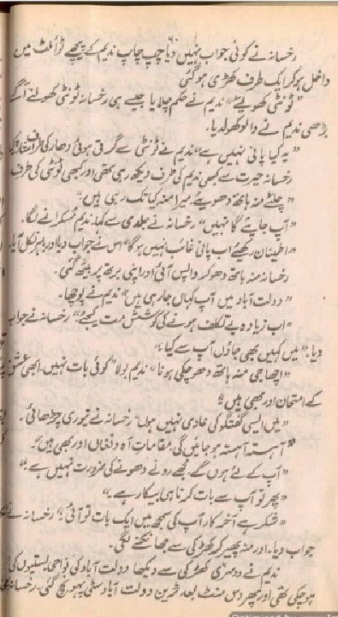 رخسانہ نے کوئی جواب نہیں دیا چپ چاپ ندیم کے پیچھے ٹوائلٹ میں
داخل ہو کر ایک طرف کھڑی ہو گئی
"ٹونٹی کھولیئے" ندیم نے حکم چلایا جیسے ہی رخسانہ ٹونٹی کھولنے آگے
بڑھی ندیم نے والو کھول دیا۔
"یہ کیا پانی نہیں ہے" ندیم نے ٹونٹی سے گرتی ہوئی دھار کی طرف
رخسانہ حیرت سے کبھی ندیم کی طرف دیکھ رہی تھی اور کبھی ٹونٹی کی طرف
"چلئے منہ ہاتھ دھویئے میرا منہ کیا تک رہی ہیں"
"آپ جایئے گا نہیں" رخسانہ نے جلدی سے کہا۔ ندیم مسکرانے لگا۔
"اطمینان رکھئے اب پانی غائب نہیں ہو گا" اس نے جواب دیا اور باہر نکل آیا۔
رخسانہ منہ ہاتھ دھو کر واپس آئی اور اپنی برتھ پر بیٹھ گئی۔
"دولت آباد میں آپ کہاں جا رہی ہیں" ندیم نے پوچھا۔
"اب زیادہ بے تکلف ہونے کی کوشش مت کیجئے" رخسانہ نے جواب
دیا۔ "میں کہیں بھی جاؤں آپ سے کیا"
"اچھا جی منہ ہاتھ دھو چکی ہو نا" ندیم بولا "کوئی بات نہیں، ابھی عشق
کے امتحان اور بھی ہیں"
"میں ایسی گفتگو کی عادی نہیں ہوں" رخسانہ نے تیوری چڑھائی۔
"آہستہ آہستہ ہو جائیں گی۔ مقاماتِ آہ و فغاں اور بھی ہیں"
"آپ کے لئے ہوں گے مجھے رونے دھونے کی ضرورت نہیں ہے"
"پھر تو آپ سے بات کرنا ہی بیکار ہے"
"شکر ہے آخر کار آپ کی سمجھ میں ایک بات تو آئی" رخسانہ نے
جواب دیا۔ اور منہ پھیر کر کھڑکی سے جھانکنے لگی۔
ندیم نے دوسری کھڑکی سے دیکھا دولت آباد کی نواحی بستیوں کی
ہو چکی تھی اور پھر دس منٹ بعد ٹرین دولت آباد سٹی پہونچ گئی۔ رخسانہ